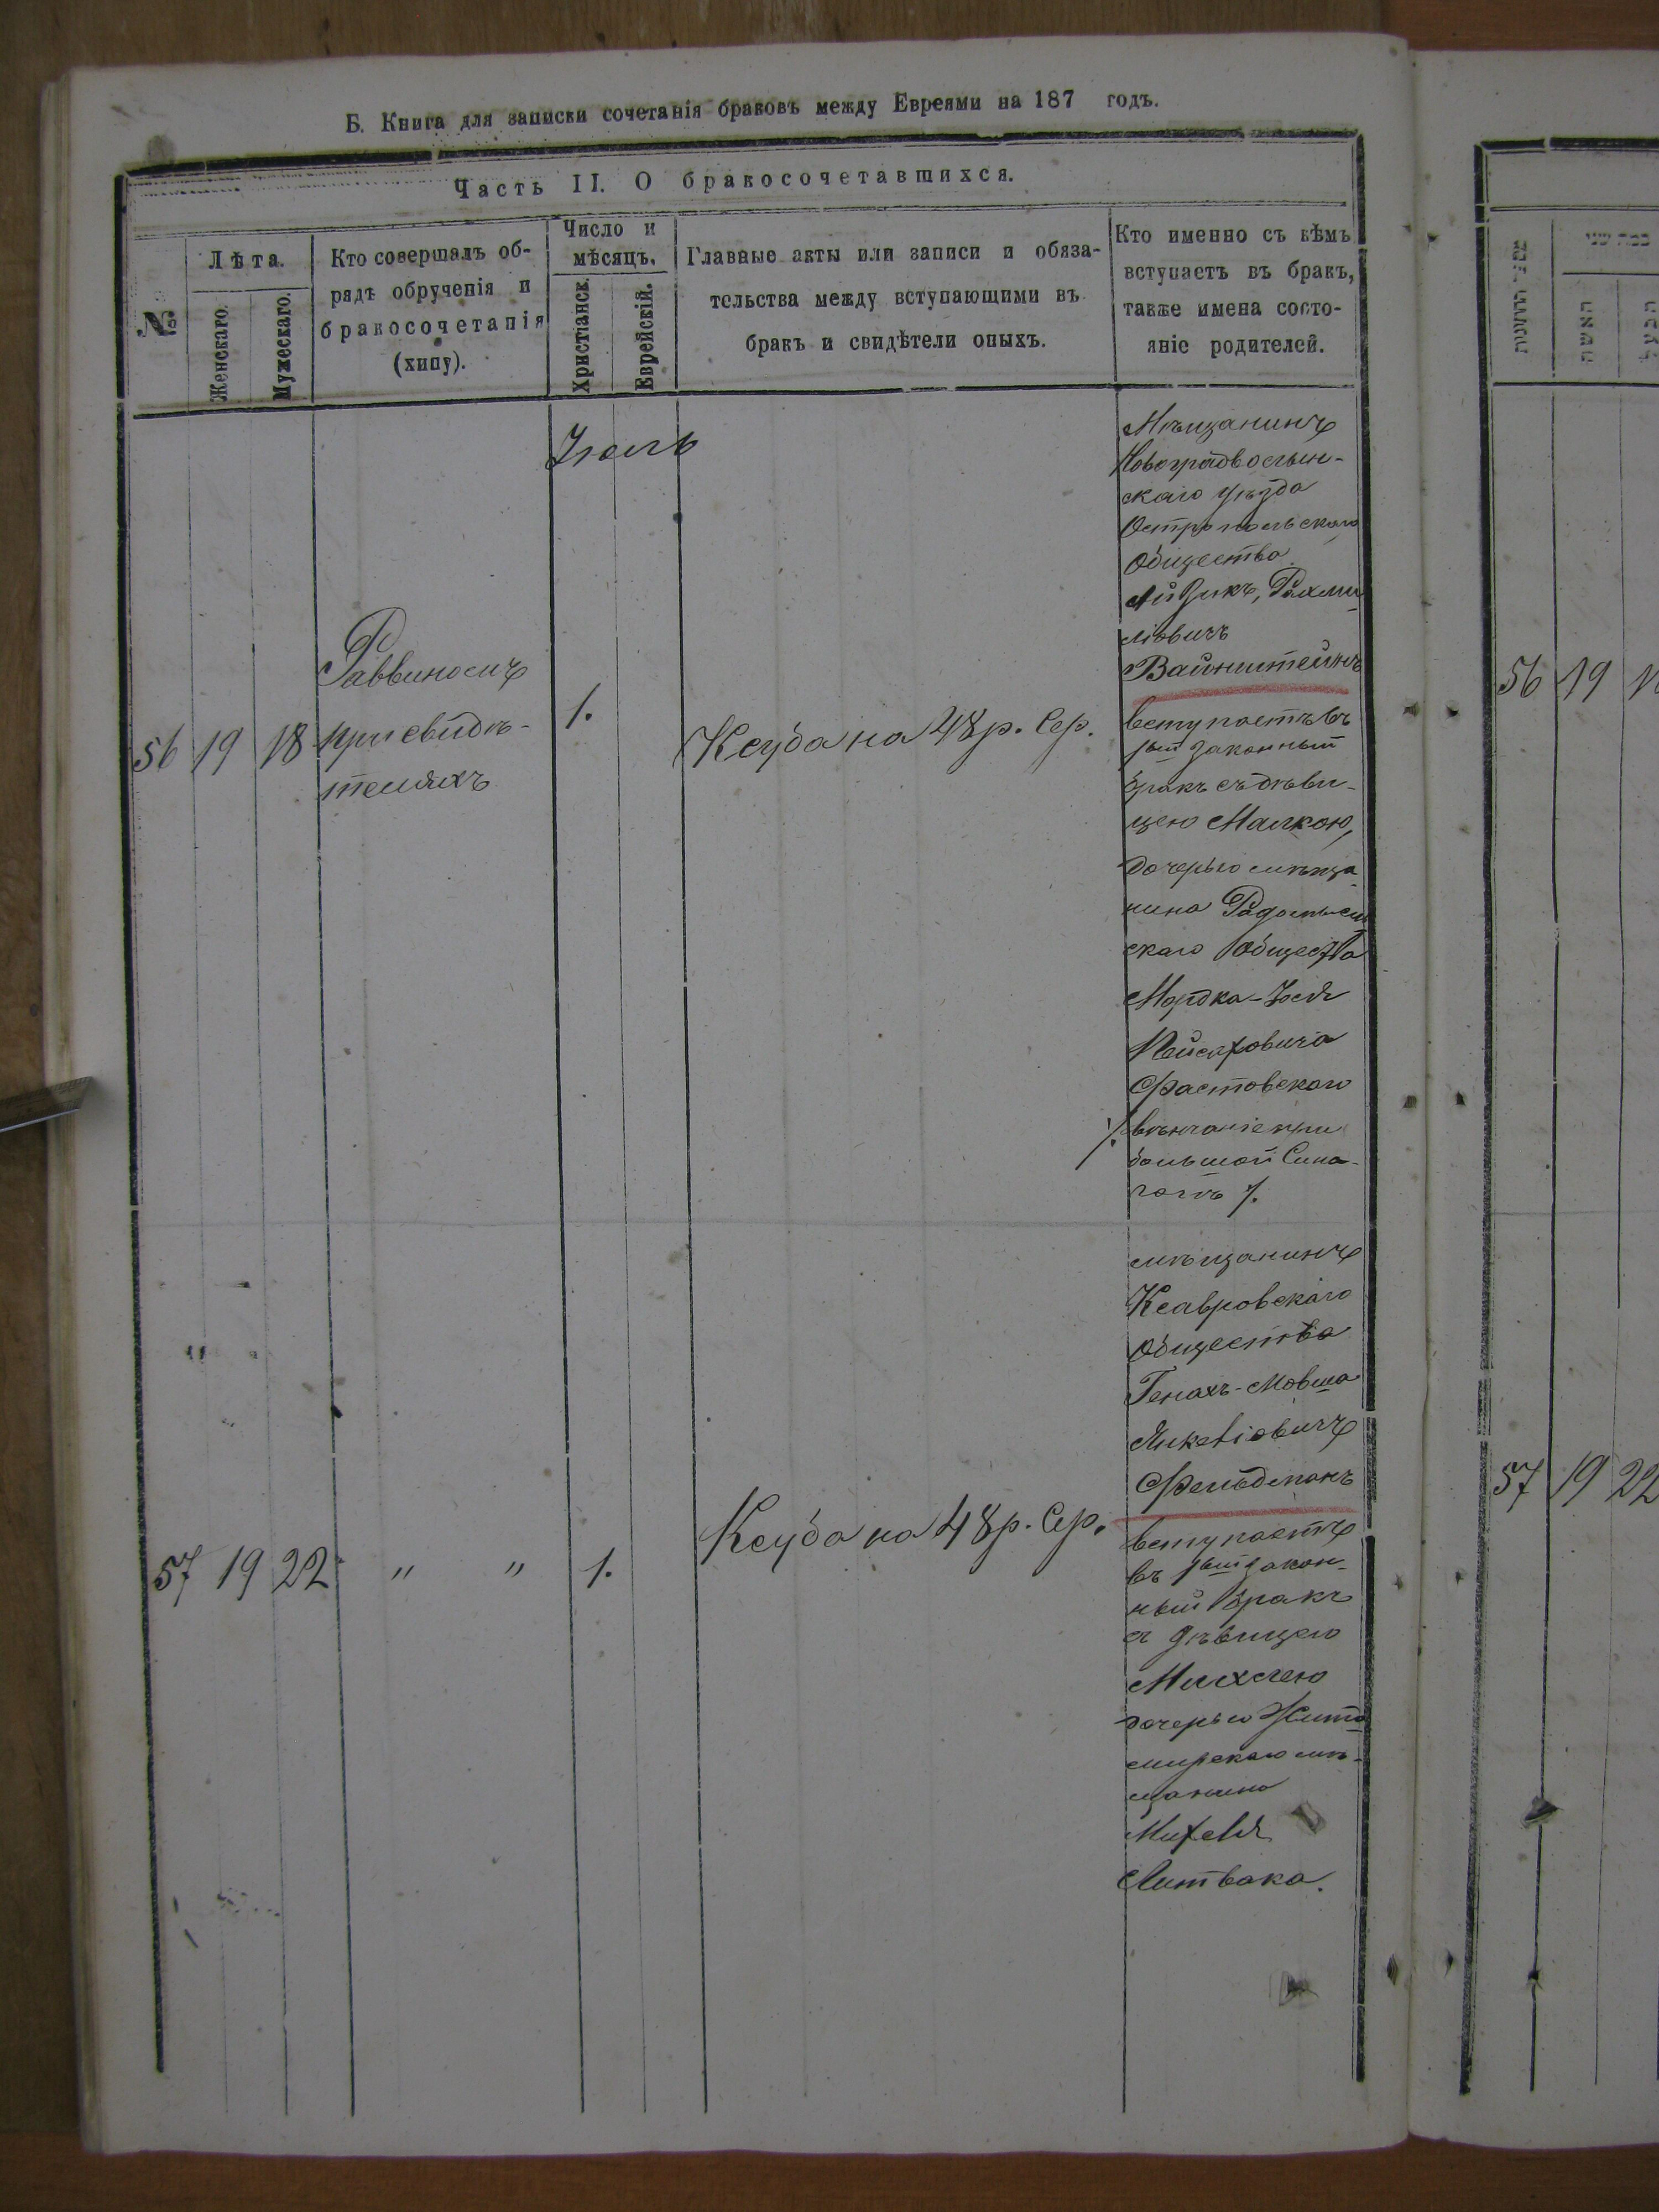 Б. Книга для записки сочетанія браковъ между Евреями на 187 годъ.
Часть II. О бракосочетавшихся.
№
Лѣта.
Женскаго.
Мужескаго.
Кто совершалъ об-
рядъ обрученія и
бракосочетанія
(хипу).
Число и
мѣсяцъ.
Христіанск.
Еврейскій.
Главные акты или записи и обяза-
тельства между вступающими въ
бракъ и свидѣтели оныхъ.
Кто именно съ кѣмъ
вступаетъ въ бракъ,
также имена состо-
яніе родителей.
Іюль
56 19 18
Раввиномъ
при свидѣ-
теляхъ
1.
Ксуба на 48 р. Сер.
Мѣщанинъ
Новоградволын-
скаго уѣзда
Остропольскаго
Общества
Айзикъ, Рахми
ліовичъ
Вайнштейнъ
вступаетъ въ
1ый законный
бракъ съ дѣви-
цею Малкою,
дочерью мѣща
нина Радомысль
скаго Общества
Мордка-Іося
Пейсаховича
Фастовскаго
/. вѣнчаніе при
большой Сина-
гогѣ /.
57 19 22 " " 1.
Ксуба на 48 р. Сер.
мѣщанинъ
Общества
Генахъ-Мовша
Янкеліовичъ
Фельдманъ
вступаетъ
въ 1ый закон-
ный бракъ
съ дѣвицею
Михлею
дочерью Жито
мирскаго мѣ-
щанина
Михеля
Литвака.
56 19
57 19 22